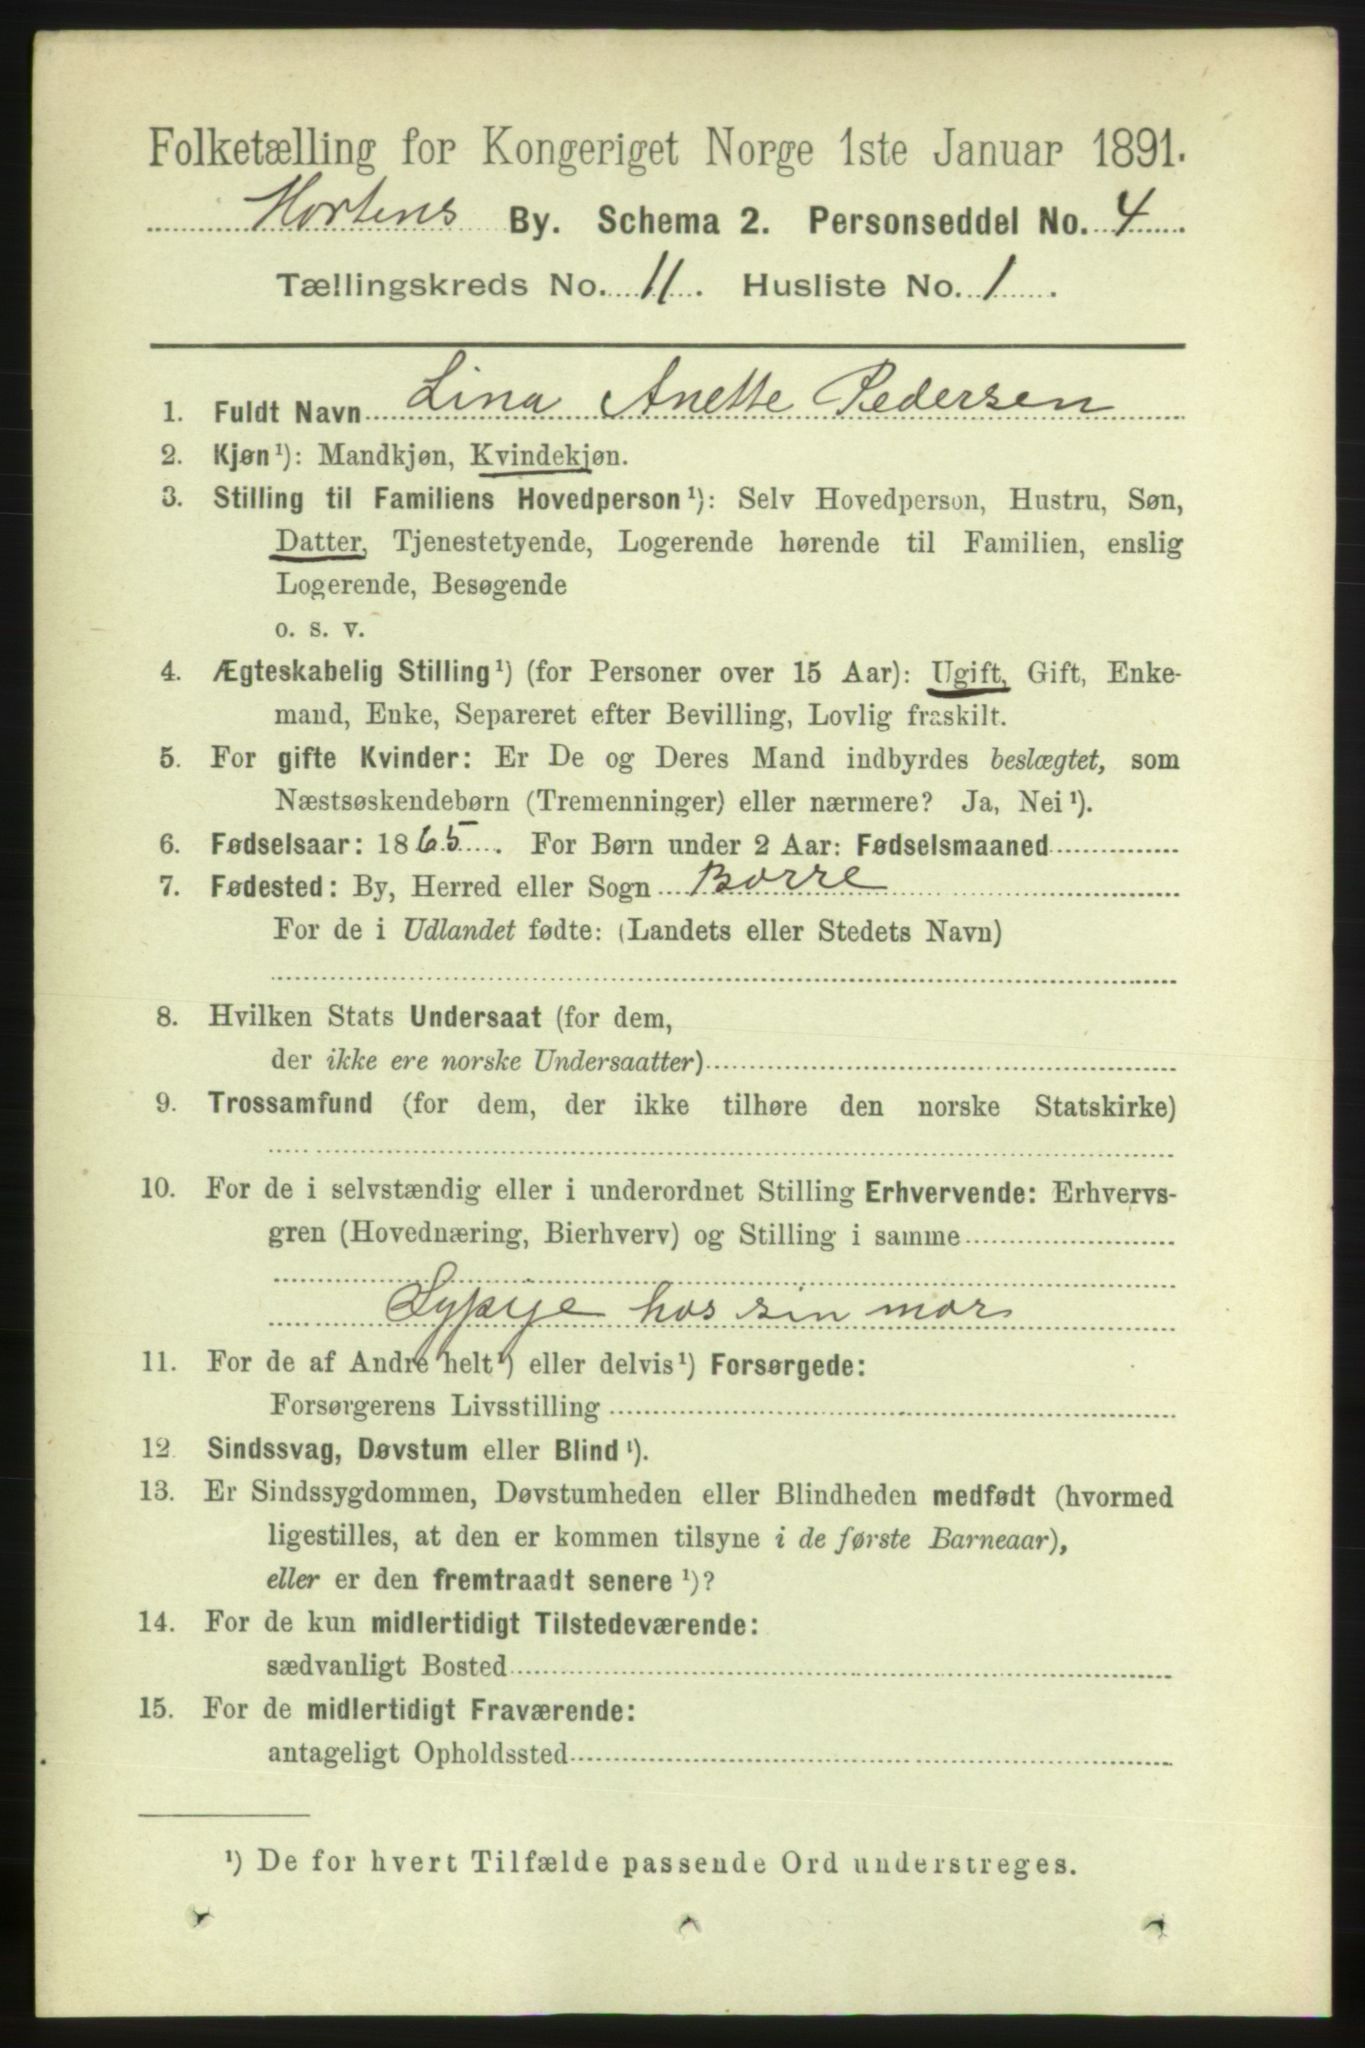 Folketælling for Kongeriget Norge 1ste Januar 1891.
Hortens By. Schema 2. Personseddel No. 4
Tællingskreds No. 11. Husliste No. 1.
1. Fuldt Navn Lina Anette Pedersen
2. Kjøn¹): Mandkjøn, Kvindekjøn.
3. Stilling til Familiens Hovedperson¹): Selv Hovedperson, Hustru, Søn,
Datter, Tjenestetyende, Logerende hørende til Familien, enslig
Logerende, Besøgende
o. s. v.
4. Ægteskabelig Stilling¹) (for Personer over 15 Aar): Ugift, Gift, Enke-
mand, Enke, Separeret efter Bevilling, Lovlig fraskilt.
5. For gifte Kvinder: Er De og Deres Mand indbyrdes beslægtet, som
Næstsøskendebørn (Tremenninger) eller nærmere? Ja, Nei¹).
6. Fødselsaar: 1865. For Børn under 2 Aar: Fødselsmaaned
7. Fødested: By, Herred eller Sogn Borre
For de i Udlandet fødte: (Landets eller Stedets Navn)
8. Hvilken Stats Undersaat (for dem,
der ikke ere norske Undersaatter)
9. Trossamfund (for dem, der ikke tilhøre den norske Statskirke)
10. For de i selvstændig eller i underordnet Stilling Erhvervende: Erhvervs-
gren (Hovednæring, Bierhverv) og Stilling i samme
Sypige hos sin mor
11. For de af Andre helt¹) eller delvis¹) Forsørgede:
Forsørgerens Livsstilling
12. Sindssvag, Døvstum eller Blind¹).
13. Er Sindssygdommen, Døvstumheden eller Blindheden medfødt (hvormed
ligestilles, at den er kommen tilsyne i de første Barneaar),
eller er den fremtraadt senere¹)?
14. For de kun midlertidigt Tilstedeværende:
sædvanligt Bosted
15. For de midlertidigt Fraværende:
antageligt Opholdssted
¹) De for hvert Tilfælde passende Ord understreges.